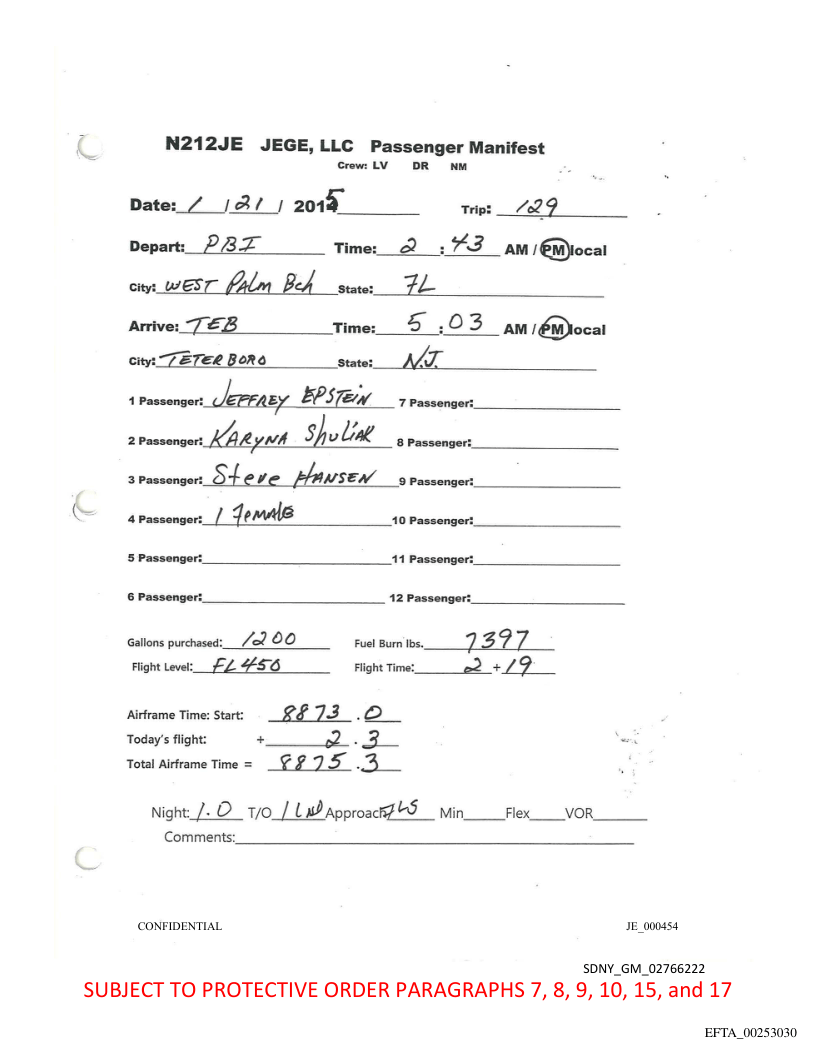 N212JE JEGE, LLC Passenger Manifest
Crew: LV DR NM
Date: 1 / 21 / 2015 Trip: 129
Depart: PBI Time: 2 : 43 AM / PM local
City: WEST PALM Bch State: FL
Arrive: TEB Time: 5 : 03 AM / PM local
City: TETERBORO State: N.J.
1 Passenger: JEFFREY EPSTEIN 7 Passenger:
2 Passenger: KARYNA SHULIAK 8 Passenger:
3 Passenger: Steve HANSEN 9 Passenger:
4 Passenger: 1 FEMALE 10 Passenger:
5 Passenger: 11 Passenger:
6 Passenger: 12 Passenger:
Gallons purchased: 1200 Fuel Burn lbs. 7397
Flight Level: FL450 Flight Time: 2 + 19
Airframe Time: Start: 8873 .0
Today's flight: + 2 . 3
Total Airframe Time = 8875 .3
Night: 1.0 T/O 1 LND Approach Min Flex VOR
Comments:
CONFIDENTIAL JE_000454
SDNY_GM_02766222
SUBJECT TO PROTECTIVE ORDER PARAGRAPHS 7, 8, 9, 10, 15, and 17
EFTA_00253030